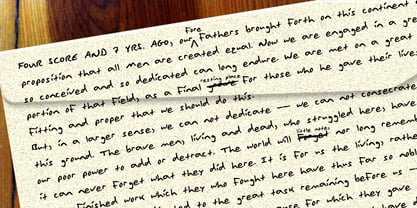 FOUR SCORE AND 7 YRS. AGO, our Fore Fathers brought Forth on this continent
proposition that all men are created equal. Now we are engaged in a gre
so conceived and so dedicated can long endure. We are met on a great
portion of that Field, as a Final grave resting place For those who he gave their lives
Fitting and proper that we should do this.
But, in a larger sense, we can not dedicate — we can not consecrate
this ground. The brave men, living and dead, who struggled here, have
our poor power to add or detract. The world will Forget little note, nor long remember
it can never Forget what they did here. It is For us the living, rathe
Finished work which they who Fought here have thus Far so nobl
to the great task remaining before us —
For which they gave